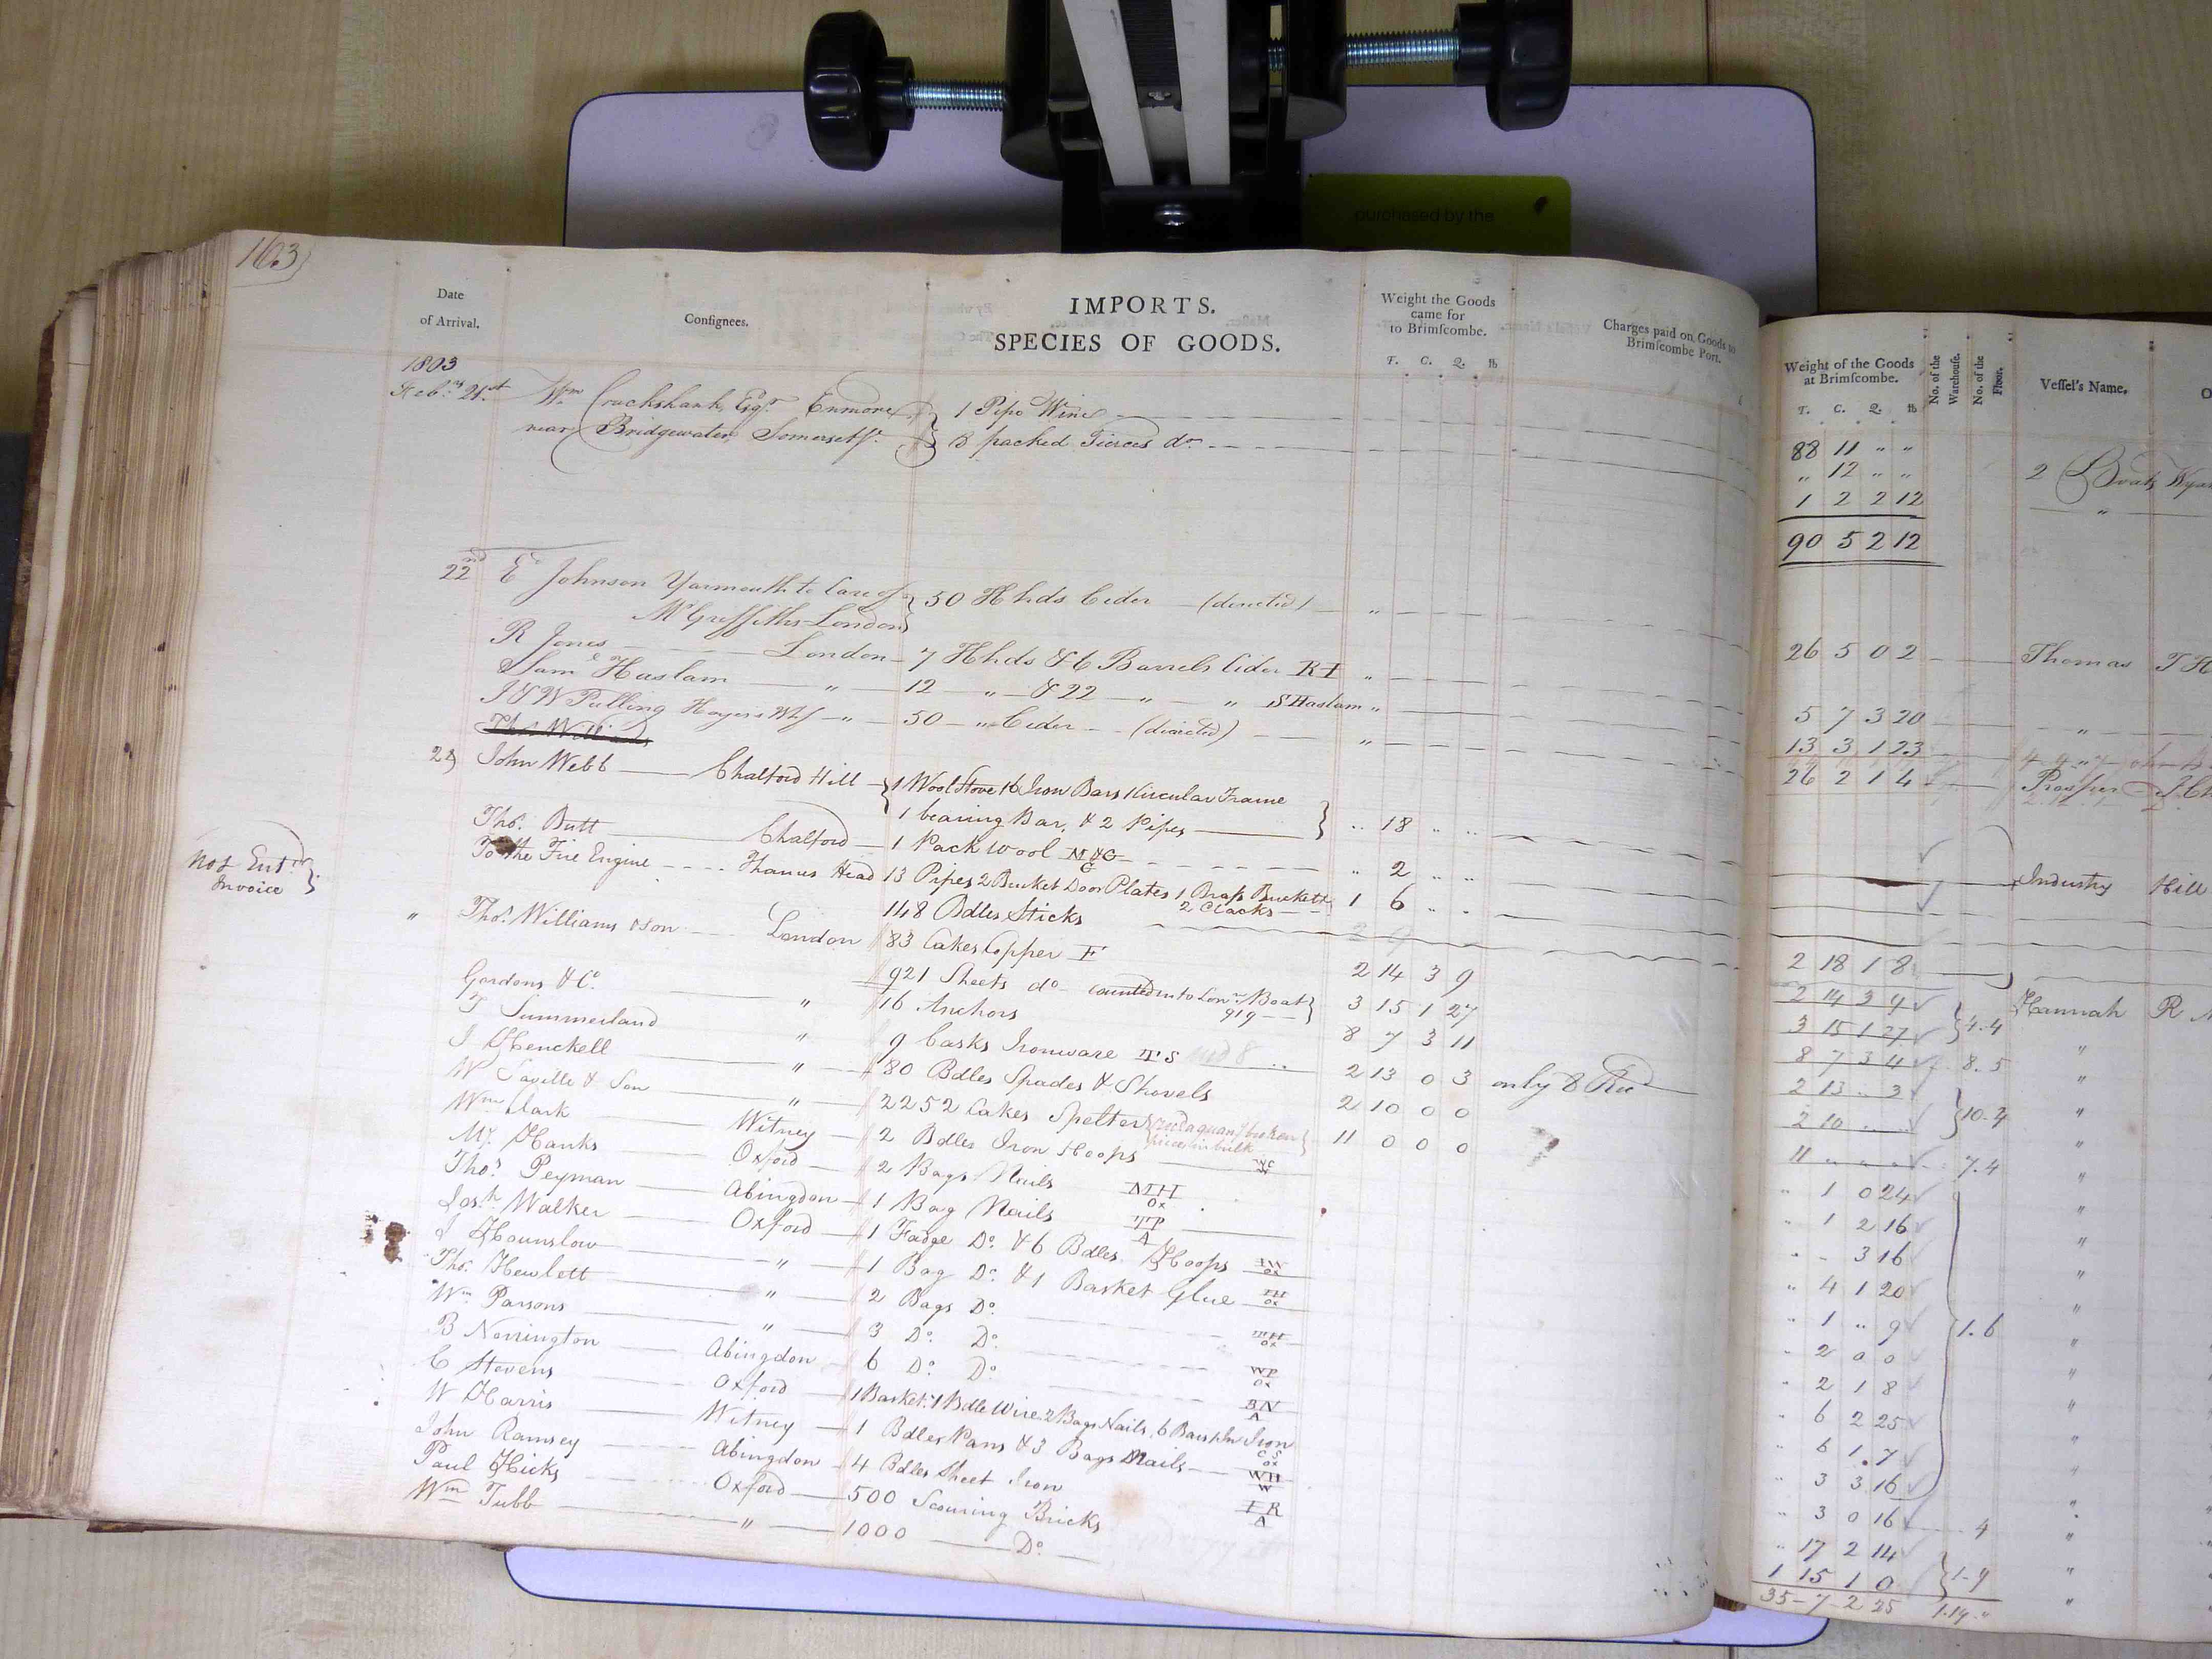 purchased by the
163)
Date
of Arrival.
Consignees.
IMPORTS.
SPECIES OF GOODS.
Weight the Goods
came for
to Brimscombe.
T. C. Q. lb
Charges paid on Goods to
Brimscombe Port.
Weight of the Goods
at Brimscombe.
T. C. Q. lb
No. of the
Warehouse.
No. of the
Floor.
Vessel's Name.
1803
Feb.ry 21.st Wm Cruckshank Esqr. Enmore } 1 Pipe Wine
near Bridgewater Somersetsr. } 3 packed Tierces do
88 11 " "
" 12 " "
1 2 2 12
90 5 2 12
2 Boats
22nd Ed Johnson Yarmouth to Care of } 50 Hhds Cider (directed) "
Mr Griffiths London }
26 5 0 2 Thomas
R Jones London 7 Hhds & 6 Barrels Cider RI "
5 7 3 20 "
Saml Haslam " 12 " & 22 " " S Haslam "
13 3 1 23
J & W Pulling Hayes Whf " 50 " Cider (directed) "
26 2 1 4 Prosper
Thos Williams
24 John Webb Chalford Hill { 1 Wool Stove 16 Iron Bars 1 Circular Frame
1 bearing Bar, & 2 Pipes } " 18 " "
Thos. Butt Chalford 1 Pack Wool " 2 " "
Industry Hill
Not Entd. Invoice } To the Fire Engine Thames Head 13 Pipes 2 Bucket Door Plates 1 Brass Buckett 1 6 " "
2 Clacks
148 Bdles Sticks
2 18 1 8
" Thos. Williams & Son London 83 Cakes Copper F 2 14 3 9
2 14 3 9 Hannah R
921 Sheets do counted into Lonn. Boat } 3 15 1 27
919
3 15 1 27 } 4.4 "
Gordons & Co. " 16 Anchors 8 7 3 11
8 7 3 4 8.5 "
T Summerland " 9 Casks Ironware TS 2 13 0 3 only 8 Recd
2 13 " 3 "
J Henckell " 80 Bdles Spades & Shovels 2 10 0 0
2 10 " " } 10.4 "
W Saville & Son " 2252 Cakes Spelter 11 0 0 0
11 " " " 7.4 "
Wm Clark Witney 2 Bdles Iron Hoops WC W
" 1 0 24 "
My. Hanks Oxford 2 Bags Nails MH Ox
" 1 2 16 "
Thos Peyman Abingdon 1 Bag Nails TP A
" - 3 16 "
Josh Walker Oxford 1 Fadge Do. & 6 Bdles. Hoops IW OX
" 4 1 20 "
J Hounslow " 1 Bag Do. & 1 Basket Glue IH OX
" 1 " 9 } 1.6 "
Thos. Hewlett " 2 Bags Do. TH OX
" 2 0 0 "
Wm Parsons " 3 Do. Do. WP OX
" 2 1 8 "
B Norrington Abingdon 6 Do. Do. BN A
" 6 2 25 "
C Stevens Oxford 1 Basket. 1 Bdle Wire 2 Bags Nails, 6 Bars 1 In Iron CS OX
" 6 1 7 "
W Harris Witney 1 Bdles Pans & 3 Bags Nails WH W
" 3 3 16 "
John Ramsey Abingdon 4 Bdles Sheet Iron IR A
" 3 0 16 4 "
Paul Hicks Oxford 500 Scouring Bricks
" 17 2 14 "
Wm Tubb " 1000 Do.
1 15 1 0 } 1-9 "
35-7-2 25 1.14."